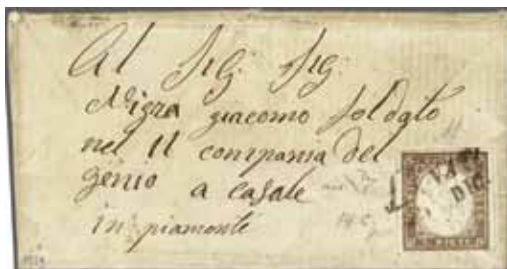 Al Sig. Sig.
Nigra giacomo soldato
nel 11 compania del
genio a casale
in piamonte
DIC